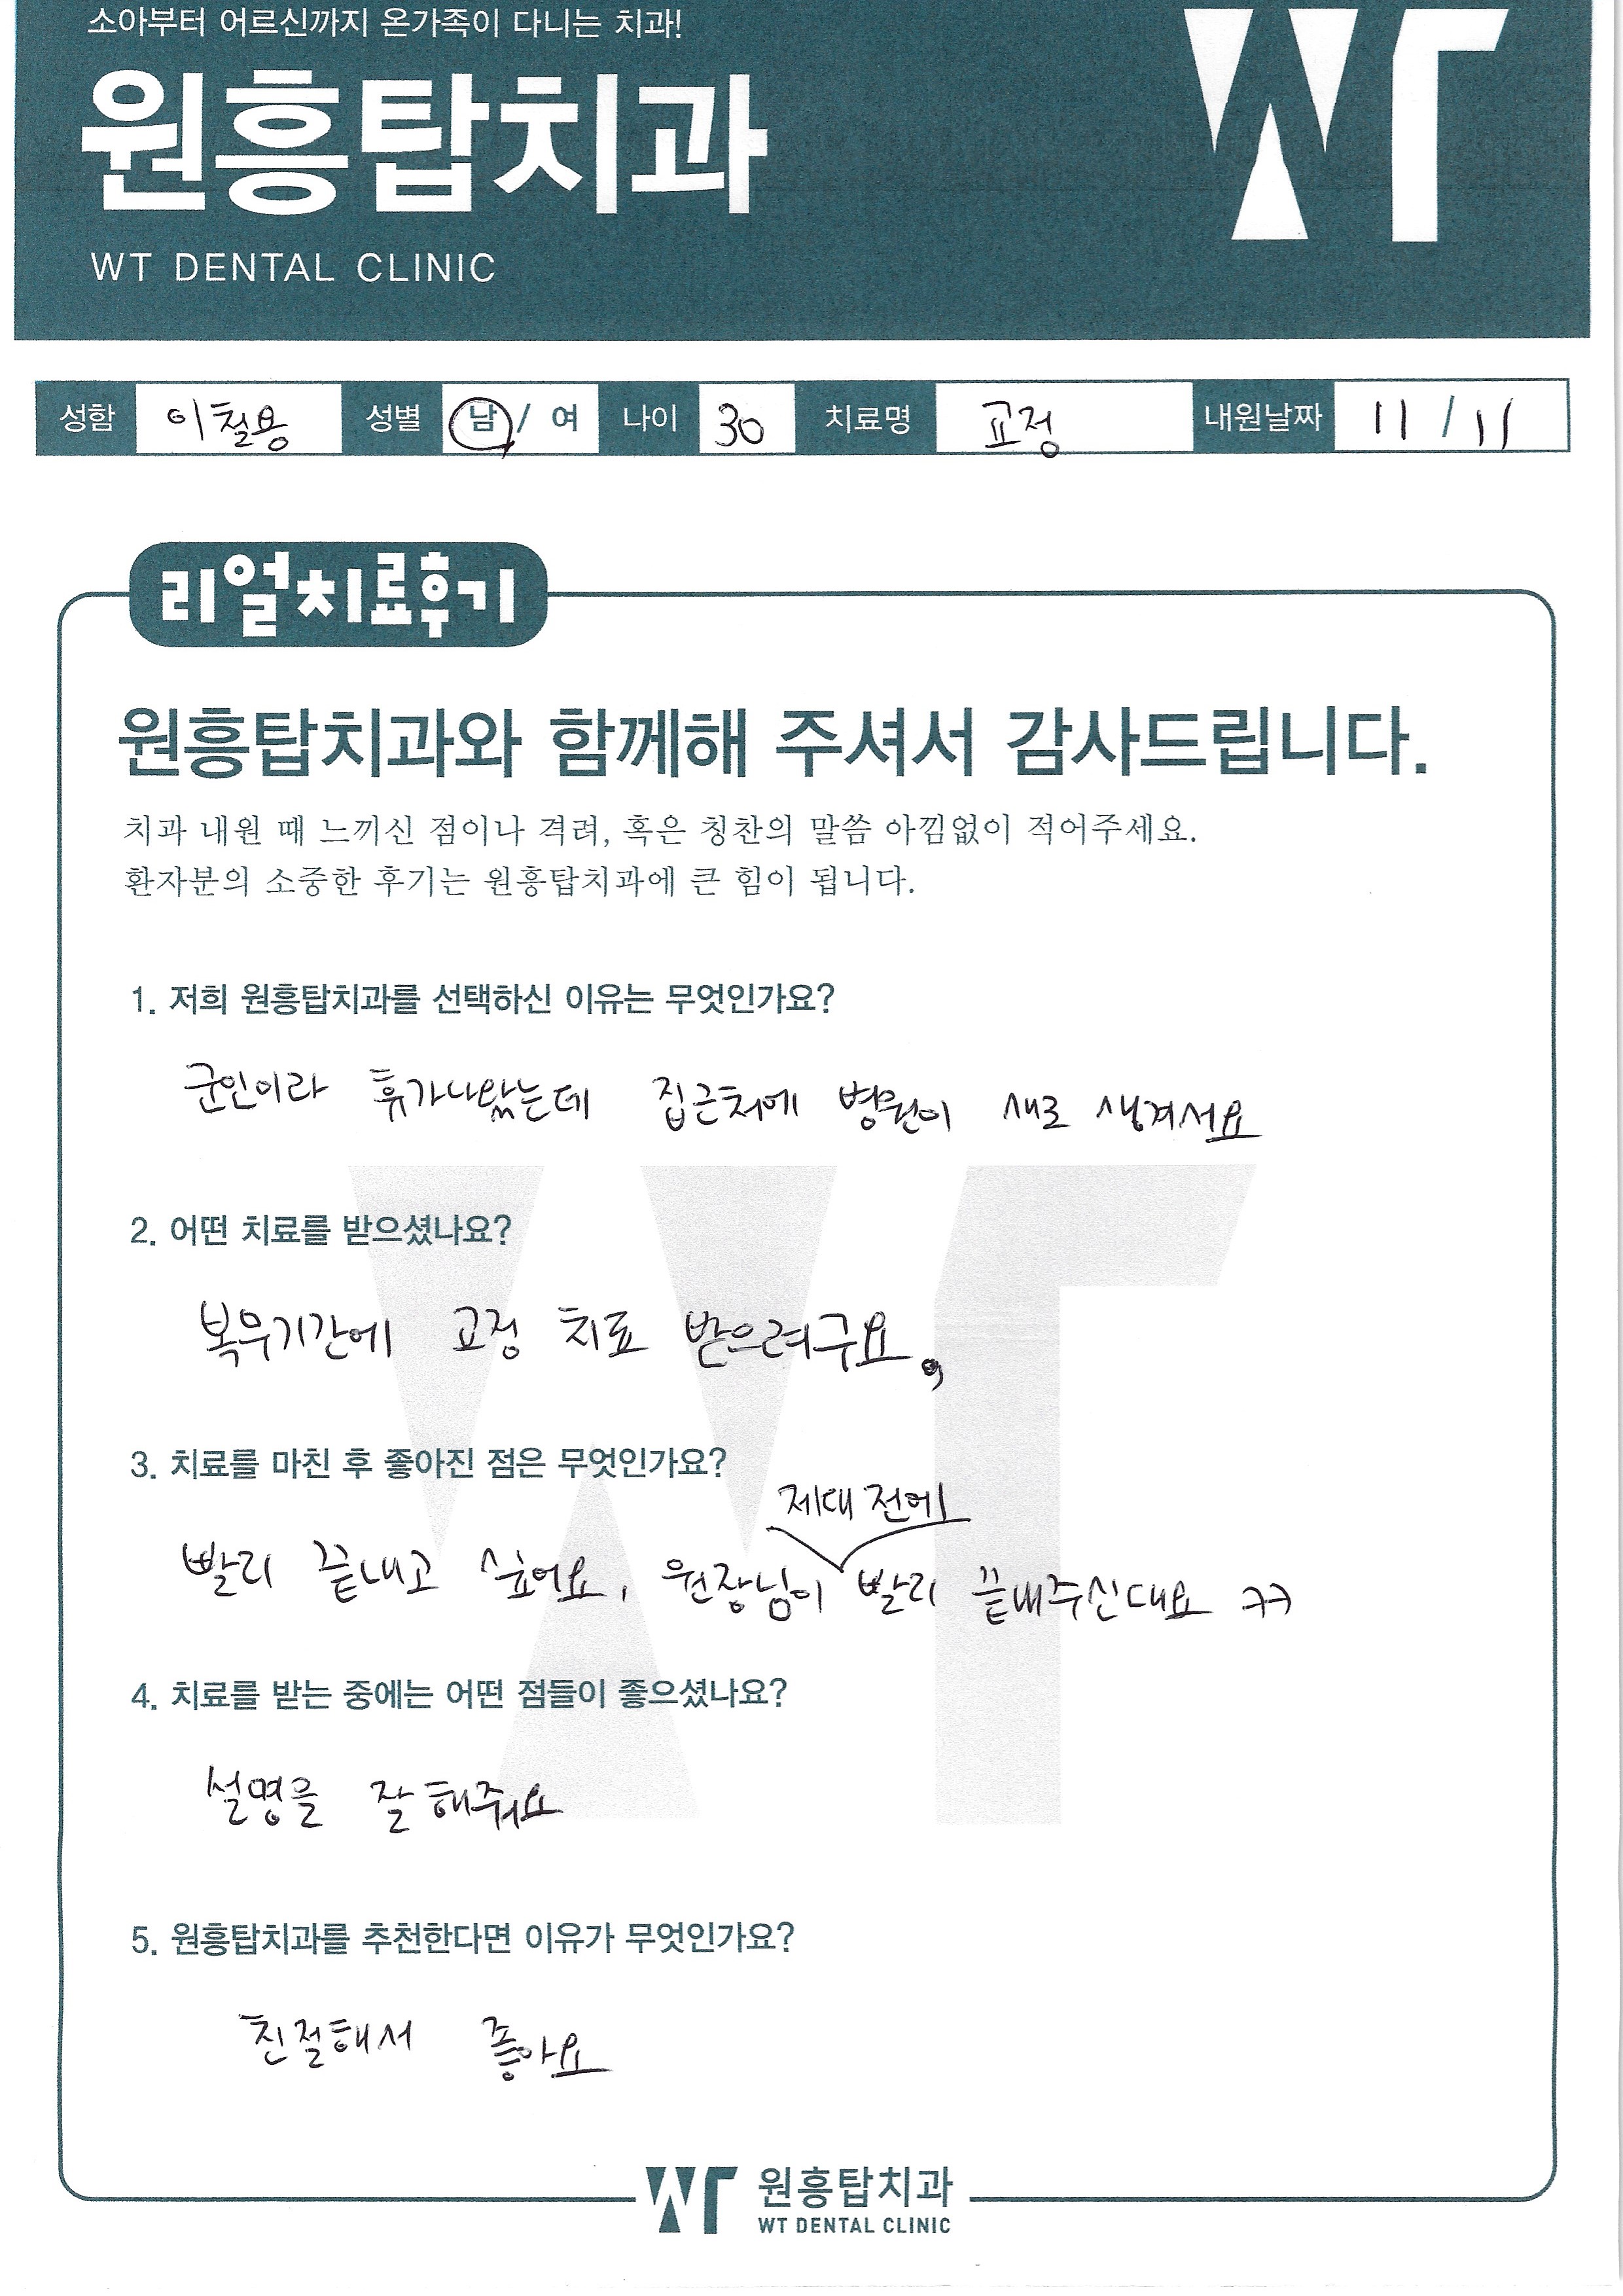 소아부터 어르신까지 온가족이 다니는 치과!
원흥탑치과
WT DENTAL CLINIC
WT
성함 이철용 성별 남 / 여 나이 30 치료명 교정 내원날짜 11 / 11
리얼치료후기
원흥탑치과와 함께해 주셔서 감사드립니다.
치과 내원 때 느끼신 점이나 격려, 혹은 칭찬의 말씀 아낌없이 적어주세요.
환자분의 소중한 후기는 원흥탑치과에 큰 힘이 됩니다.
1. 저희 원흥탑치과를 선택하신 이유는 무엇인가요?
군인이라 휴가나왔는데 집근처에 병원이 새로 생겨서요
2. 어떤 치료를 받으셨나요?
복무기간에 교정 치료 받으려구요.
3. 치료를 마친 후 좋아진 점은 무엇인가요?
제대 전에
빨리 끝내고 싶어요, 원장님이 빨리 끝내주신대요 ㅋㅋ
4. 치료를 받는 중에는 어떤 점들이 좋으셨나요?
설명을 잘 해줘요
5. 원흥탑치과를 추천한다면 이유가 무엇인가요?
친절해서 좋아요
WT 원흥탑치과
WT DENTAL CLINIC